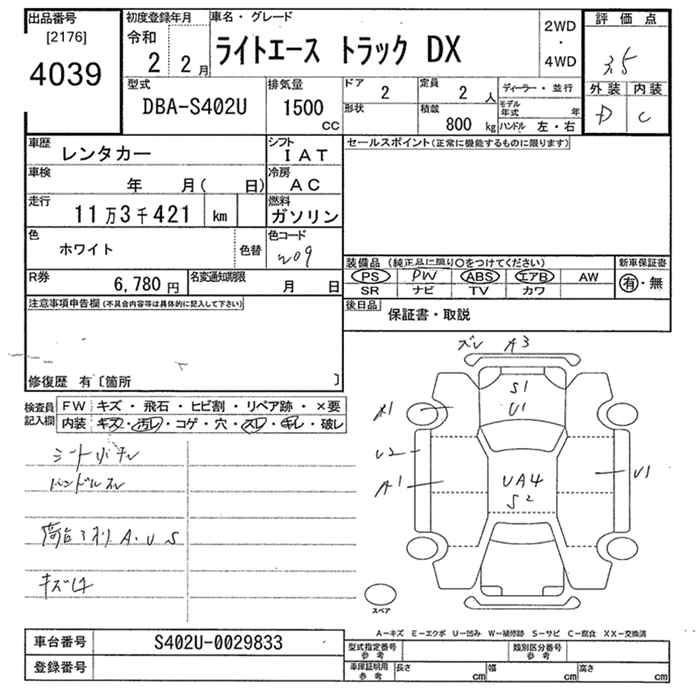 出品番号
[2176]
4039
初度登録年月
令和
2 2月
車名・グレード
ライトエース トラック DX
2WD
・
4WD
評価点
3.5
外装 内装
D C
型式
DBA-S402U
排気量
1500
CC
ドア
2
定員
2 人
形状
積載
800 kg
ディーラー・並行
モデル年式 年
ハンドル 左・右
車歴
レンタカー
シフト
IAT
車検
年 月( 日)
冷房
AC
走行
11万3千421 km
燃料
ガソリン
色
ホワイト
色替
色コード
W09
R券
6,780円
名変通知期限
月 日
セールスポイント(正常に機能するものに限ります)
装備品 (純正品に限り○をつけてください)
PS PW ABS エアB AW
SR ナビ TV カワ
新車保証書
有・無
後日品
保証書・取説
注意事項申告欄(不具合内容等は具体的に記入して下さい)
修復歴 有〔箇所 〕
検査員
記入欄
FW キズ・飛石・ヒビ割・リペア跡・×要
内装 キズ・汚レ・コゲ・穴・スレ・キレ・破レ
ハンドルスレ
荷台 A.U S
キズ
ズレ A3
S1
U1
A1
U2
A1
UA4
S2
U1
スペア
A−キズ E−エクボ U−凹み W−補修跡 S−サビ C−腐食 XX−交換済
車台番号 S402U-0029833
登録番号
型式指定番号
参考
類別区分番号
参考
車庫証明用
参考
長さ cm 幅 cm 高さ cm